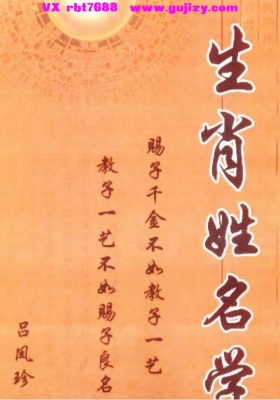 VX rbt7688 www.gujizy.com
生肖姓名学
赐子千金不如教子一艺
教子一艺不如赐子良名
吕凤珍